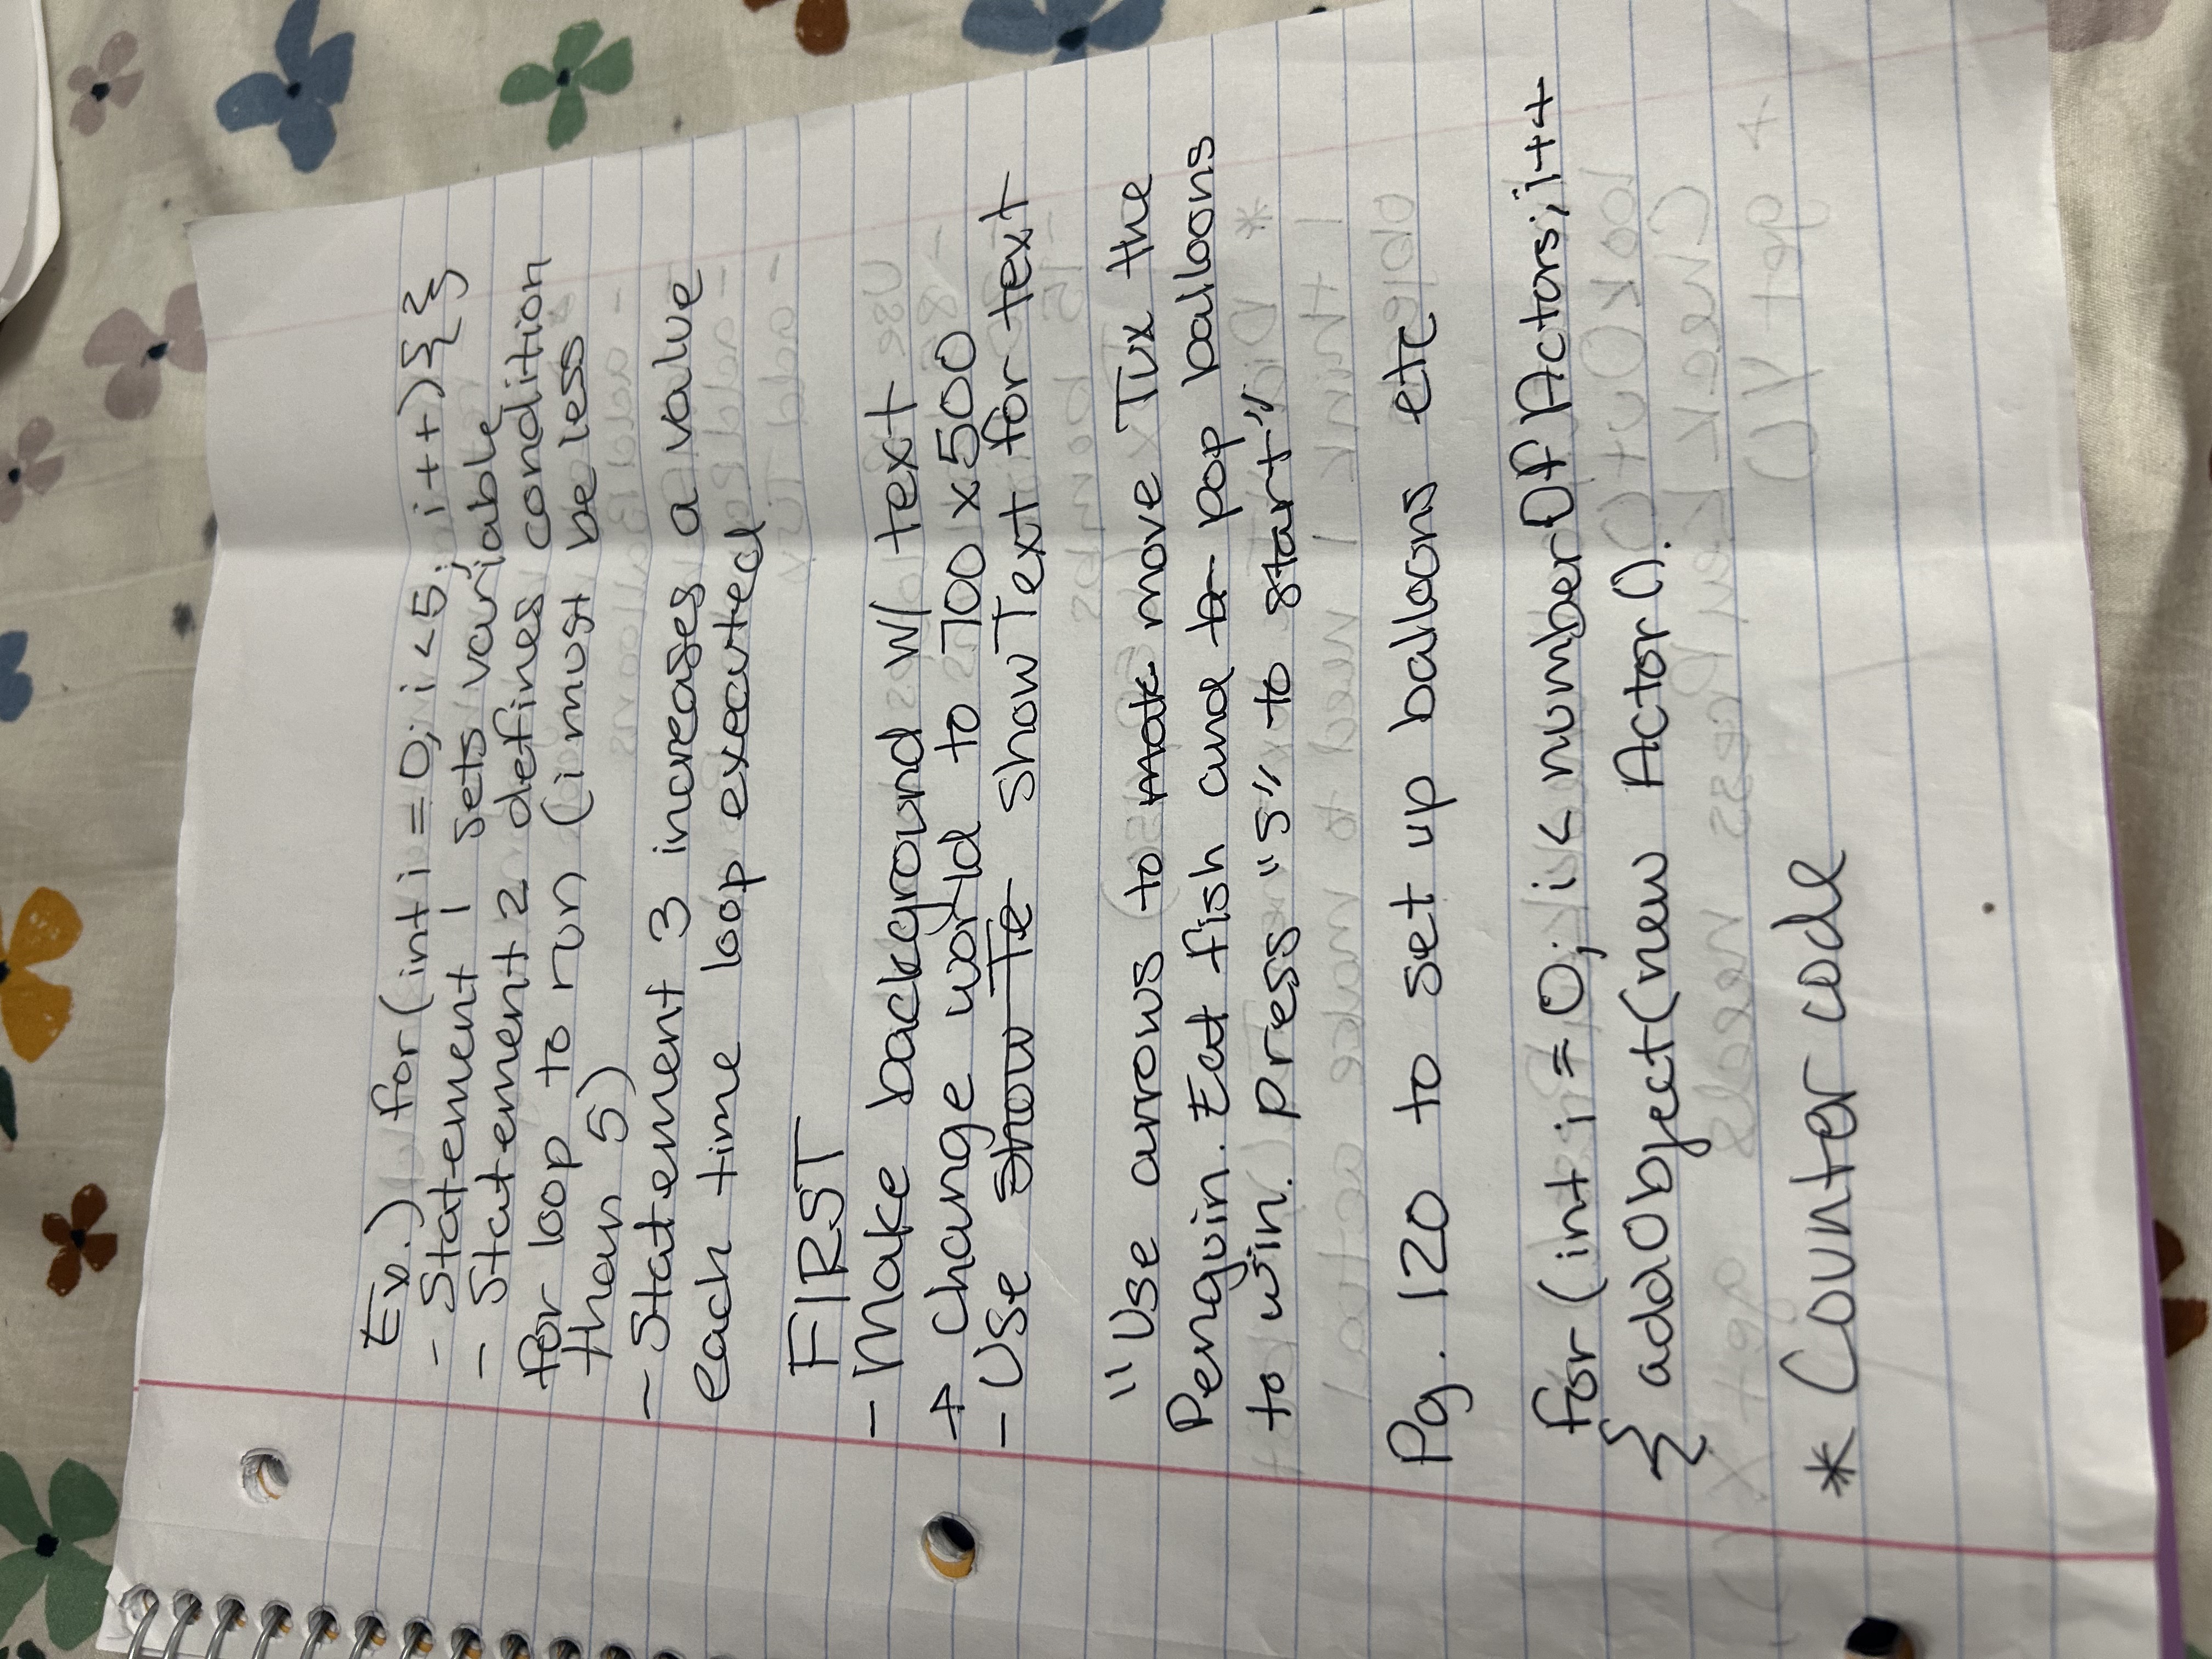 Ex.) for(int i = 0; i < 5; i++){}
- Statement 1 sets variable
- Statement 2 defines condition
for loop to run (i must be less
than 5)
- Statement 3 increases a value
each time loop executed
FIRST
- Make background w/ text
→ change world to 700 x 500
- Use show Te showText for text
"Use arrows to mak move Tux the
Penguin. Eat fish and b pop balloons
to win. Press "S" to start"
Pg. 120 to set up balloons etc
for (int i = 0; i < numberOfActors; i++
{ addObject(new Actor().
* Counter code